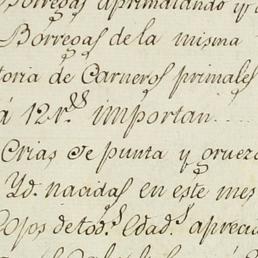 Borregas aprimalando y
Borregas de la misma
toria de Carneros primales
á 12 r.s importan....
Crias de punta y grueza
Yd. nacidas en este mes
Cojos de tod.s Edad.s aprecia